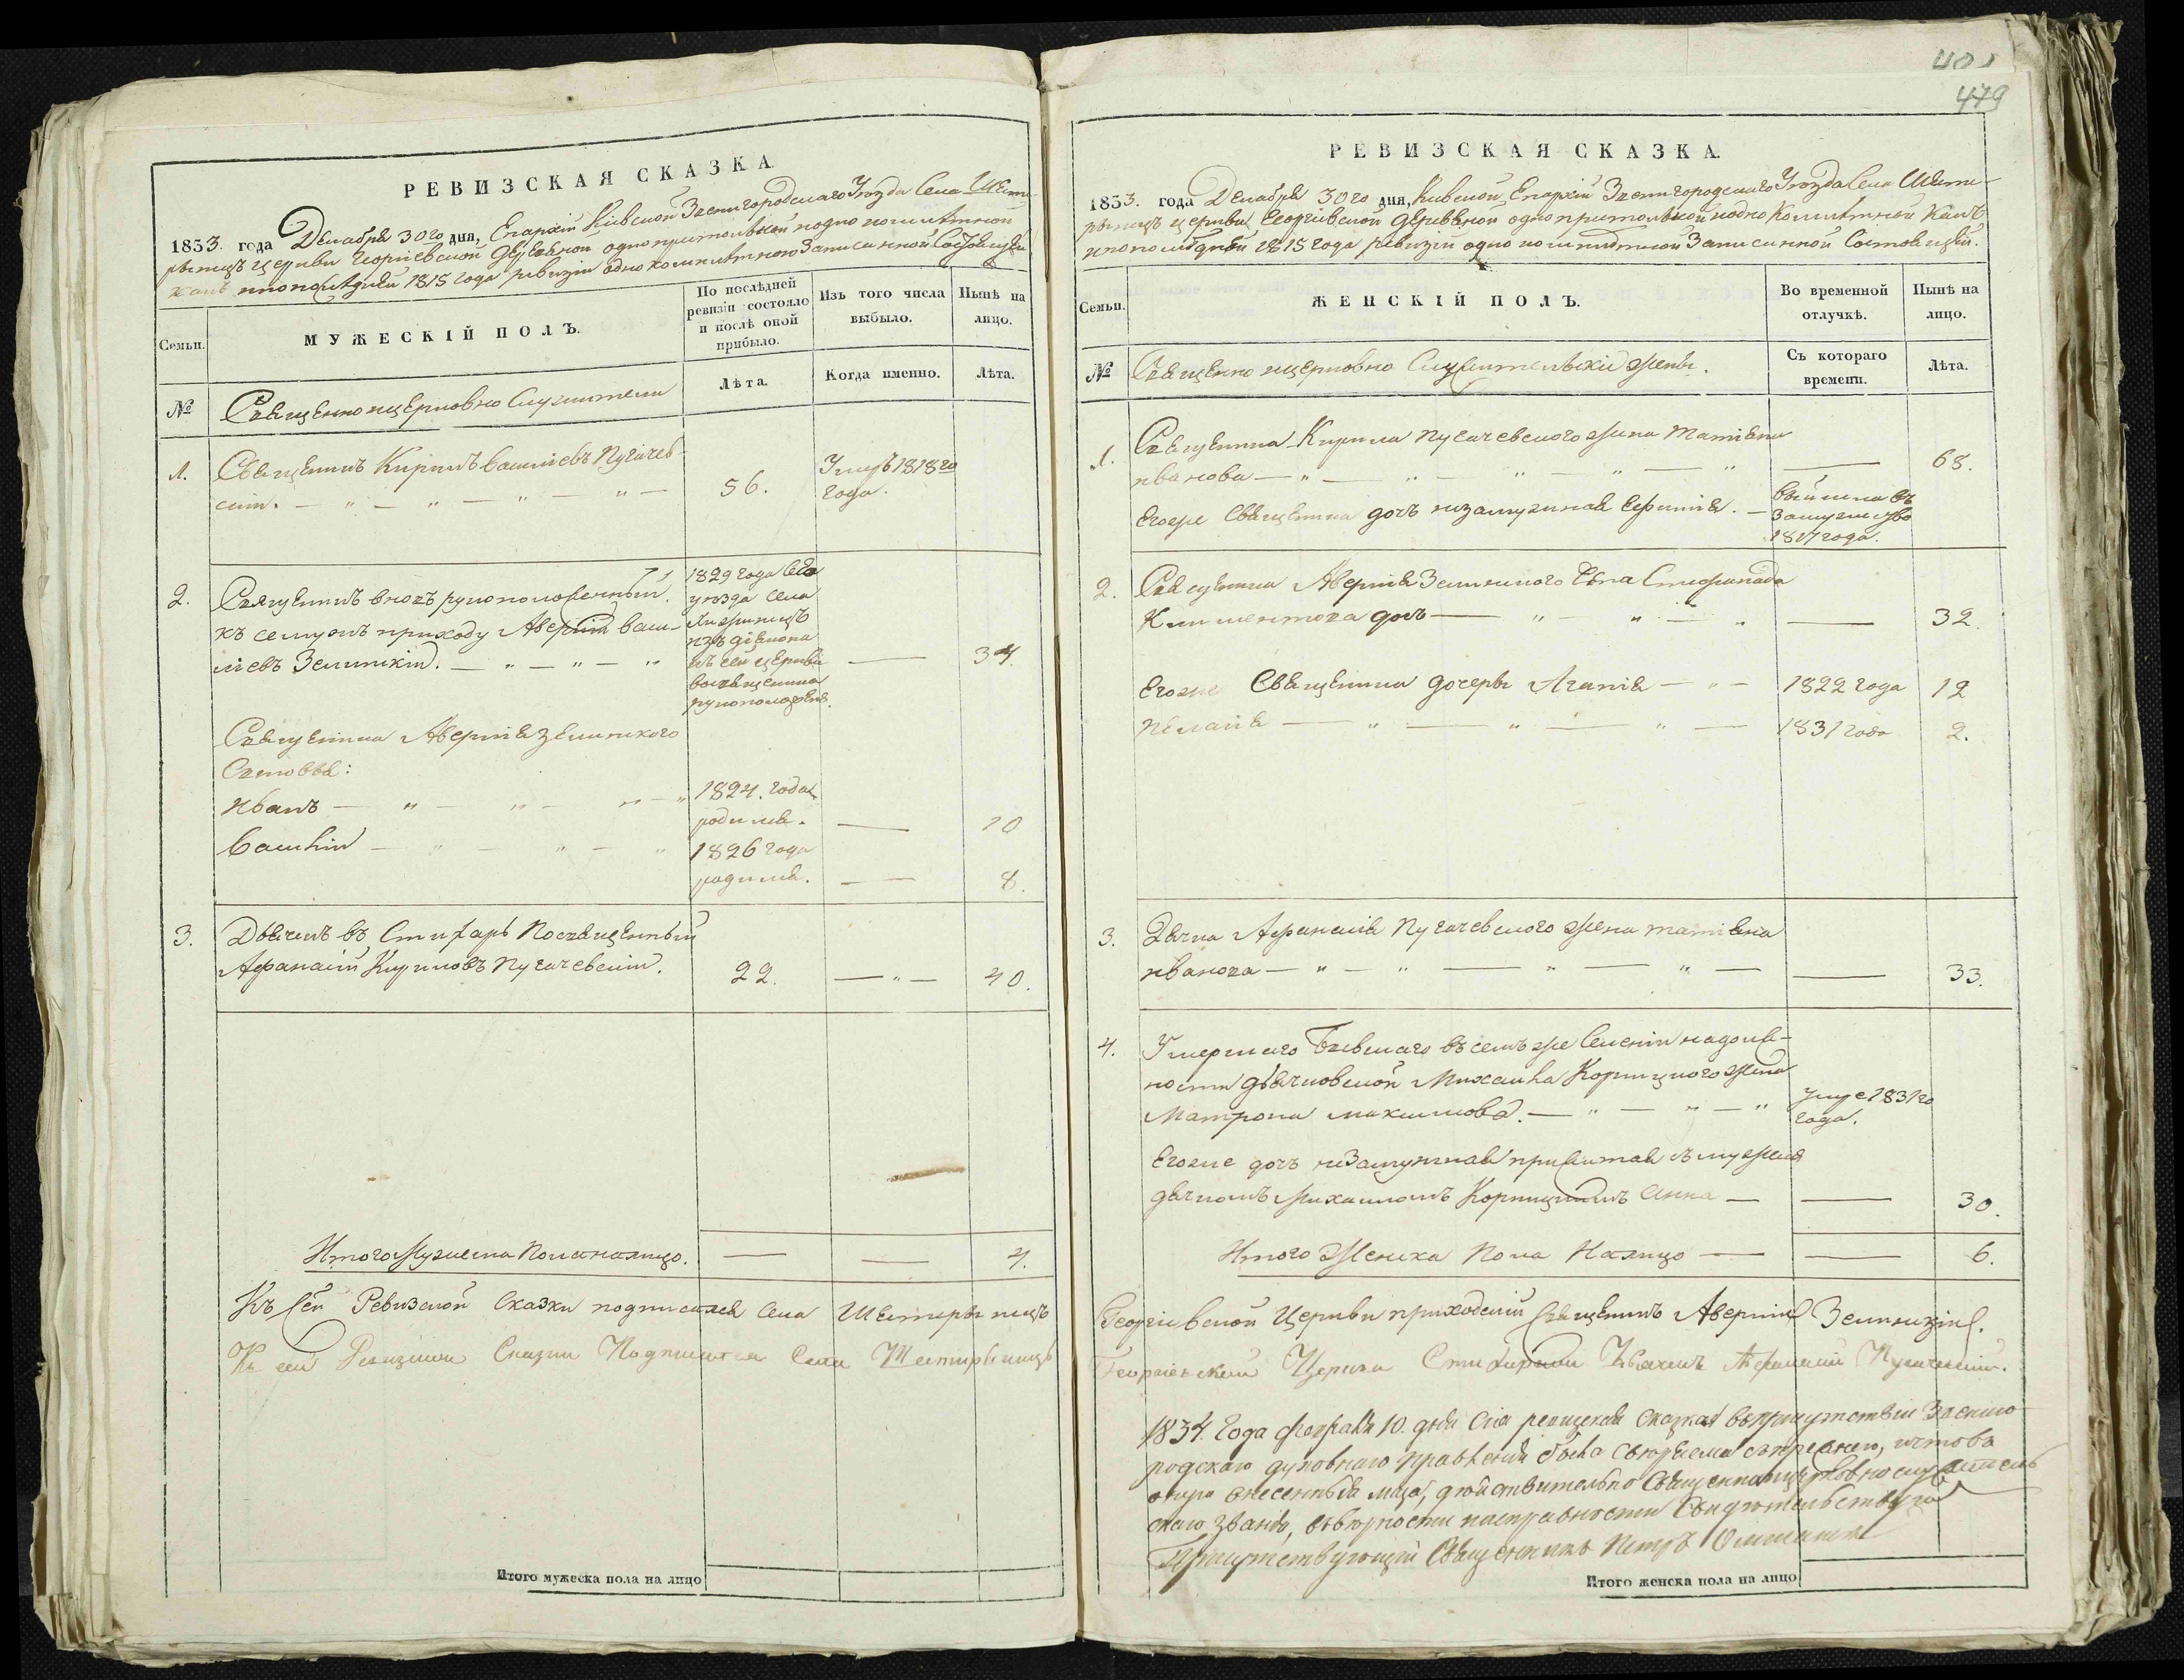 РЕВИЗСКАЯ СКАЗКА.
1833. года Декабря 30го дня, Епархіи Кіевской Звенигородскаго Уѣзда Села Шести-
рынецъ церкви Георгіевской деревяной однопрестольной однокомплетной
какъ и по послѣдней 1815 года ревизіи однокомплетною записанной Состоящей
Семьи.
МУЖЕСКІЙ ПОЛЪ.
По послѣдней ревизіи состояло и послѣ оной прибыло.
Изъ того числа выбыло.
Нынѣ на лицо.
№
Священно и церковно Служители
Лѣта.
Когда именно.
Лѣта.
1. Священникъ Кирилъ Василіевъ Пугачев-
скій. — „ — „ — „ — „ — 56. Умеръ 1818го
года.
2. Священникъ вновь рукоположенный. 1829 года сего
къ сему приходу Аверкій Васи- уѣзда села
ліевъ Зелинскій. — „ — „ — „ — 34.
изъ діакона
къ сей церкви
во священника
рукоположенъ.
Священника Аверкія Зелинского
Сыновья:
Иванъ — „ — „ — „ — „ 1824. года
родился. — 10
Василій — „ — „ — „ 1826 года
родился. — 8.
3. Дьячекъ въ Стихарь Посвященный
Афанасій Кириловъ Пугачевскій. 22. — „ — 40.
Итого Мужеска Пола на лицо. — — 4.
Къ сей Ревизской Сказки подписался Села Шестирынецъ
Къ сей Ревизской Сказки Подписался Села Шестирынецъ
Итого мужеска пола на лицо
479
РЕВИЗСКАЯ СКАЗКА.
1833. года Декабря 30го дня, Кіевской Епархіи Звенигородскаго Уѣзда Села Шести-
рынецъ церкви Георгіевской деревяной однопрестольной однокомплетной какъ
и по послѣдней 1815 года ревизіи однокомплетной Записанной Состоящей.
Семьи.
ЖЕНСКІЙ ПОЛЪ.
Во временной отлучкѣ.
Нынѣ на лицо.
№
Священно и церковно Служительскіе жены.
Съ котораго времени.
Лѣта.
1. Священника Кирила Пугачевского жена Татіяна
Иванова — „ — „ — „ — „ — „ — 68.
Егоже Священника дочъ незамужная Ефимія. — Вышла въ
замужство
1817 года.
2. Священника Аверкія Зелинского жена Стефанида
Климентова дочъ — „ — „ — „ — 32.
Егоже Священника дочеры Агапія — „ — 1822 года 12
Пелагія — „ — „ — „ — 1831 года 2.
3. Дячка Афанасія Пугачевского жена Татіяна
Иванова — „ — „ — „ — „ — — 33.
4. Умершаго Бывшаго въ семъ же Селеніи на долж-
ности дьячковской Михаила Корницкого жена
Матрона Максимова. — „ — „ — „ умре 1831го
года.
Егоже дочъ незамужная прижитая съ мужемъ
дячкомъ Михаиломъ Корницкимъ Анна — — 30.
Итого Женска Пола На лицо — — 6.
Георгіевской Церкви приходскій Священникъ Аверкій Зелинскій.
Георгіевской Церкви Стихарный Дьячекъ Афанасій Пугачевскій.
1834. Года Февраля 10. дня сія ревизская сказка въ присутствіи Звениго-
родскаго духовнаго правленія была свѣряема съ прежнею, и что въ
оную внесенныя лица, дѣйствительно Священно и церковно служитель-
скаго званія, въ вѣрности и исправности Свидѣтельствуетъ
Присутствующій Священникъ Петръ
Итого женска пола на лицо